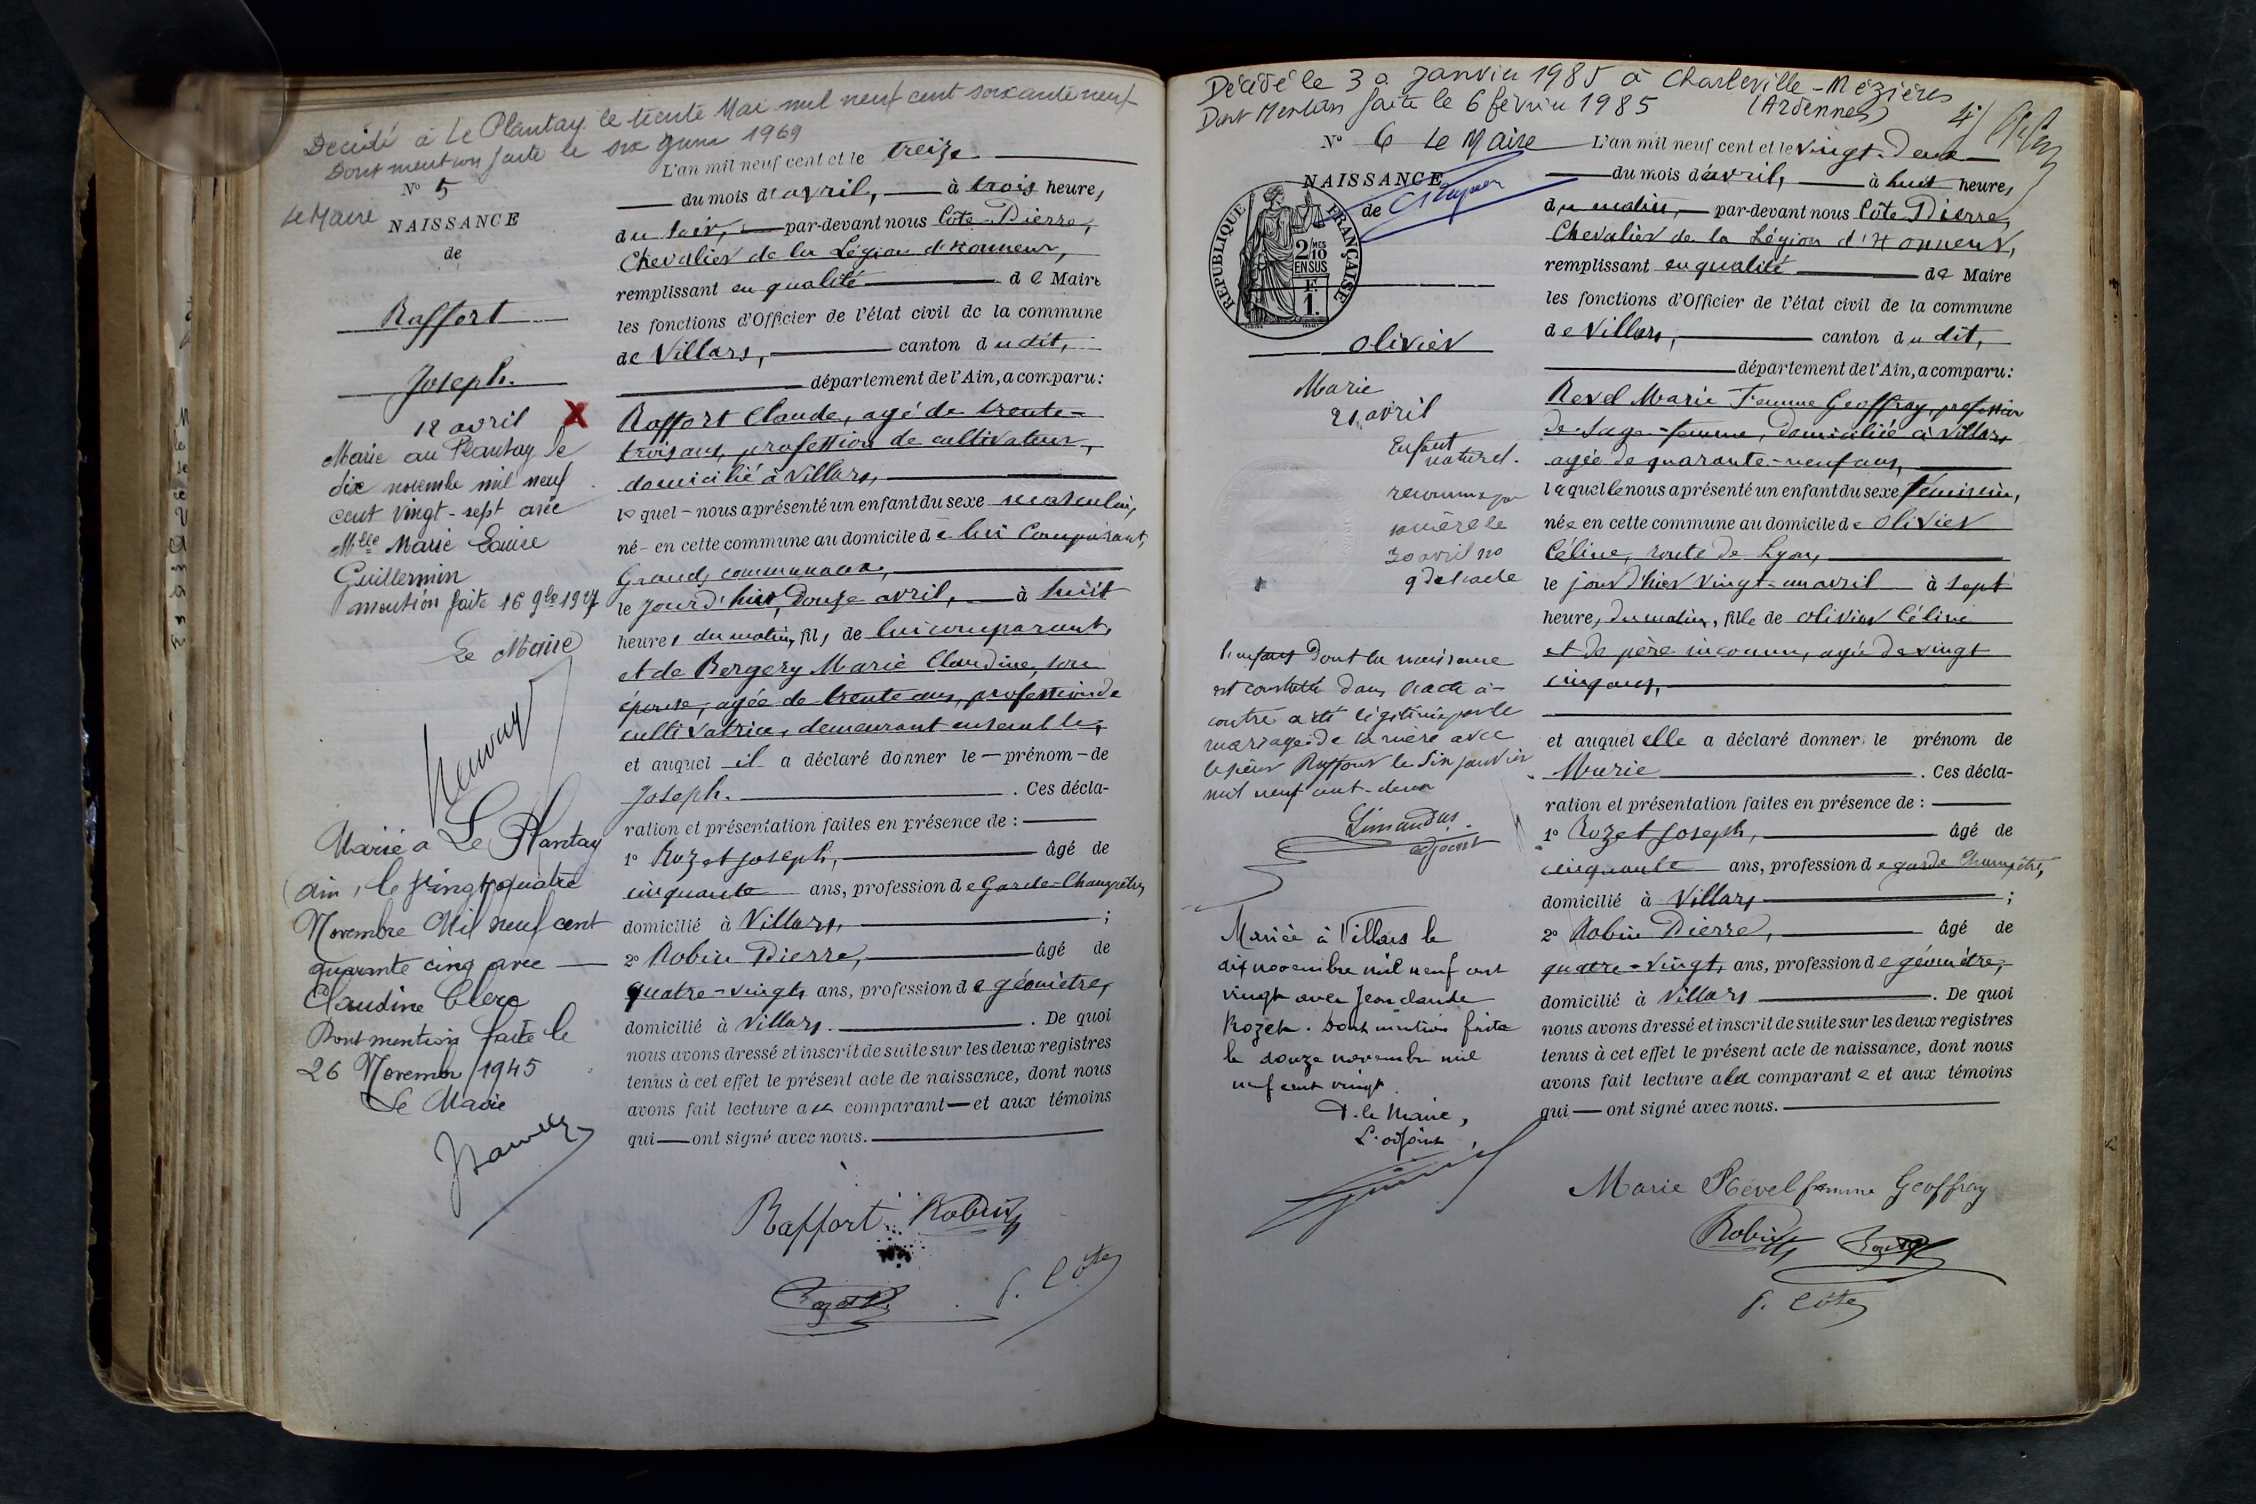 Décédé à Le Plantay le trente Mai mil neuf cent soixante neuf
Dont mention faite le six Juin 1969
Le Maire
N° 5
NAISSANCE
de
Raffort
Joseph.
12 avril X
Marié au Plantay le
dix novembre mil neuf
cent vingt-sept avec
Mlle Marie Louise
Guillermin
mention faite 16 9bre 1927
Le Maire
Marié à Le Plantay
(Ain, le vingt quatre
Novembre Mil neuf cent
quarante cinq avec
Claudine Clerc
Dont mention faite le
26 Novembre 1945
Le Maire
L'an mil neuf cent et le treize
du mois d'avril, à trois heures,
du soir, par-devant nous Côte Pierre,
Chevalier de la Légion d'Honneur,
remplissant en qualité de Maire
les fonctions d'Officier de l'état civil de la commune
de Villars, canton du dit,
département de l'Ain, a comparu:
Raffort Claude, agé de trente-
trois ans, profession de cultivateur,
domicilié à Villars,
lequel nous a présenté un enfant du sexe masculin,
né en cette commune au domicile de lui Comparant,
Grands communaux,
le jour d'hier, Douze avril, à huit
heures du matin, fils de lui comparant,
et de Bergery Marie Claudine, son
épouse, agée de trente ans, profession de
cultivatrice, demeurant ensemble,
et auquel il a déclaré donner le prénom de
Joseph. Ces décla-
ration et présentation faites en présence de :
1° Rozet Joseph, âgé de
cinquante ans, profession de Garde-Champêtre,
domicilié à Villars, ;
2° Robin Pierre, âgé de
quatre-vingts ans, profession de géomètre,
domicilié à Villars. De quoi
nous avons dressé et inscrit de suite sur les deux registres
tenus à cet effet le présent acte de naissance, dont nous
avons fait lecture au comparant et aux témoins
qui ont signé avec nous.
Raffort Robin
Rozet P. Côte
Décédé le 30 Janvier 1985 à Charleville-Mézières
Dont Mention faite le 6 février 1985 (Ardennes)
N° 6 Le Maire
NAISSANCE
de
RÉPUBLIQUE FRANÇAISE
2/10 MES
EN SUS
F.
1.
Olivier
Marie
21 avril
Enfant
naturel.
reconnu par
sa mère le
30 avril no
9 de l'acte
l'enfant Dont la naissance
est constatée dans l'acte ci-
contre a été légitimé par le
mariage de la mère avec
le sieur Raffour le six janvier
mil neuf cent-deux
Limandas
adjoint
Mariée à Villars le
dix novembre mil neuf cent
vingt avec Jean claude
Rozet. Dont mention faite
le douze novembre mil
neuf cent vingt.
P. le Maire,
L'adjoint,
L'an mil neuf cent et le vingt-deux
du mois d'avril, à huit heures,
du matin, par-devant nous Côte Pierre,
Chevalier de la Légion d'Honneur,
remplissant en qualité de Maire
les fonctions d'Officier de l'état civil de la commune
de Villars, canton du dit,
département de l'Ain, a comparu:
Revel Marie Femme Geoffray, profession
de sage-femme, domiciliée à Villars
agée de quarante-neuf ans,
laquelle nous a présenté un enfant du sexe féminin,
née en cette commune au domicile de Olivier
Céline, route de Lyon,
le jour d'hier vingt-un avril à sept
heures, du matin, fille de Olivier Céline
et de père inconnu, agée de vingt
cinq ans,
et auquel elle a déclaré donner le prénom de
Marie. Ces décla-
ration et présentation faites en présence de :
1° Rozet Joseph, âgé de
cinquante ans, profession de garde Champêtre,
domicilié à Villars ;
2° Robin Pierre, âgé de
quatre-vingts ans, profession de géomètre,
domicilié à Villars. De quoi
nous avons dressé et inscrit de suite sur les deux registres
tenus à cet effet le présent acte de naissance, dont nous
avons fait lecture à la comparante et aux témoins
qui ont signé avec nous.
Marie Revel femme Geoffray
Robin Rozet
P. Côte